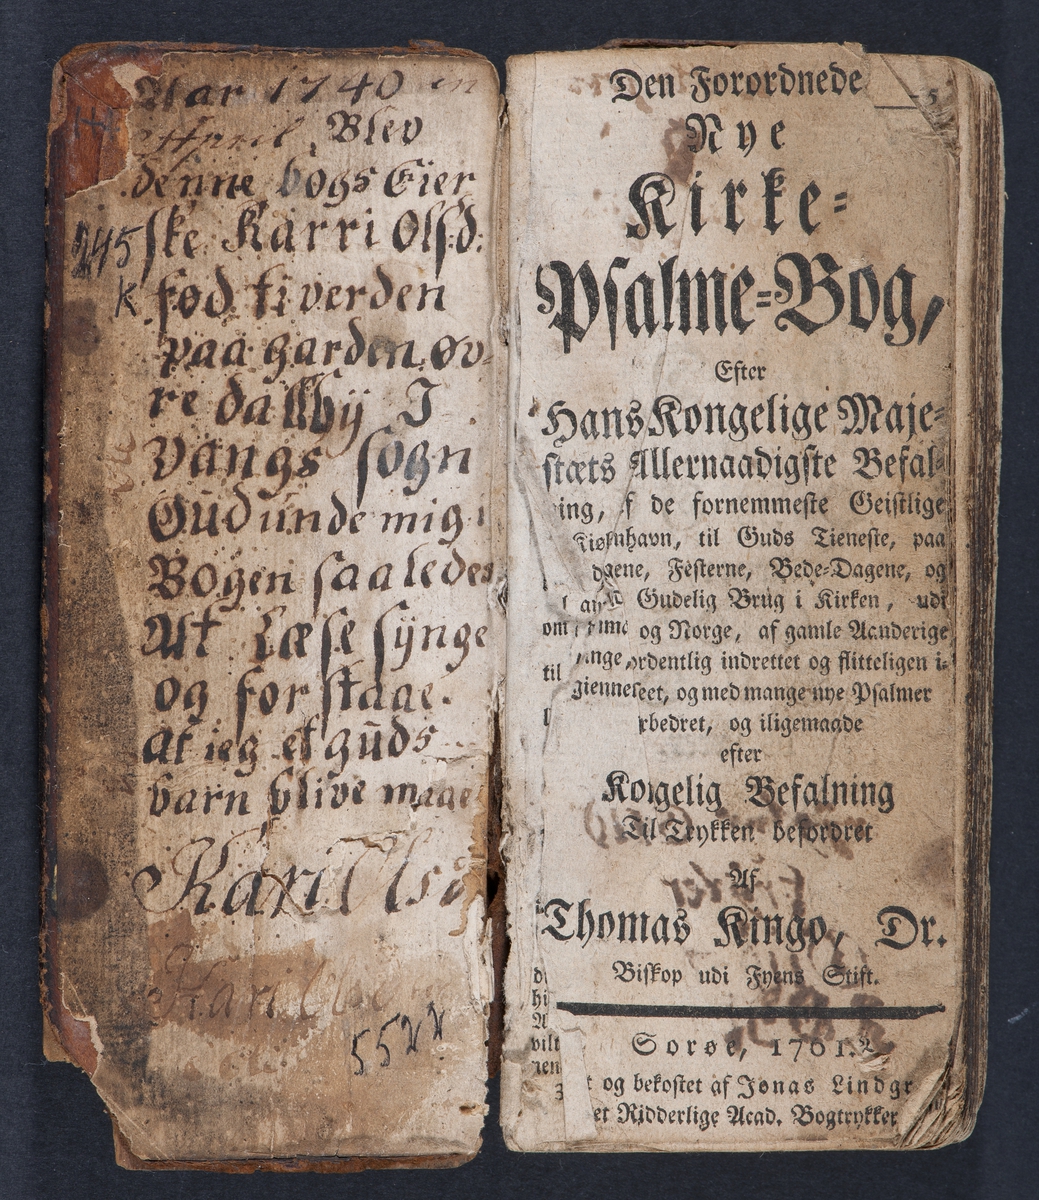 Aar 1740 in
April, Blev
denne bogs Eier
ske Karri Olsd:
fød ti verden
paa garden øv-
re dallbÿ I
vangs sogn
Gud unde mig
Bogen saaledes
At Læse sÿnge
og forstaae.
at ieg et guds
barn blive maae
Kari Olsd
245
K
Kari
5522
Den Forordnede
Nye
Kirke-
Psalme-Bog,
Efter
Hans Kongelige Maje-
stæts Allernaadigste Befal-
ing, af de fornemmeste Geistlige
Kiøbnhavn, til Guds Tieneste, paa
dagene, Festerne, Bede-Dagene, og
Gudelig Brug i Kirken, udi
og Norge, af gamle Aanderige
ordentlig indrettet og flitteligen i-
giennemseet, og med mange nye Psalmer
rbedret, og iligemaade
efter
Kongelig Befalning
Til Trykken befordret
Af
Thomas Kingo, Dr.
Biskop udi Fyens Stift.
Sorøe, 1761.
t og bekostet af Jonas Lindgr
et Ridderlige Acad. Bogtrykker